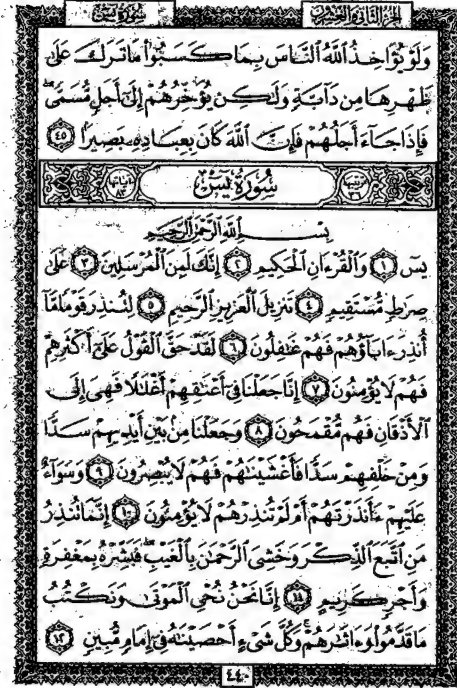 الجزء الثاني والعشرون
سورة يس
وَلَوْ يُؤَاخِذُ ٱللَّهُ ٱلنَّاسَ بِمَا كَسَبُوا۟ مَا تَرَكَ عَلَىٰ
ظَهْرِهَا مِن دَآبَّةٍ وَلَـٰكِن يُؤَخِّرُهُمْ إِلَىٰٓ أَجَلٍ مُّسَمًّى ۖ
فَإِذَا جَآءَ أَجَلُهُمْ فَإِنَّ ٱللَّهَ كَانَ بِعِبَادِهِۦ بَصِيرًۢا ٤٥
ترتيبها ٣٦
سُورَةُ يسٓ
آياتها ٨٣
بِسْمِ ٱللَّهِ ٱلرَّحْمَـٰنِ ٱلرَّحِيمِ
يسٓ ١ وَٱلْقُرْءَانِ ٱلْحَكِيمِ ٢ إِنَّكَ لَمِنَ ٱلْمُرْسَلِينَ ٣ عَلَىٰ
صِرَٰطٍ مُّسْتَقِيمٍ ٤ تَنزِيلَ ٱلْعَزِيزِ ٱلرَّحِيمِ ٥ لِتُنذِرَ قَوْمًا مَّآ
أُنذِرَ ءَابَآؤُهُمْ فَهُمْ غَـٰفِلُونَ ٦ لَقَدْ حَقَّ ٱلْقَوْلُ عَلَىٰٓ أَكْثَرِهِمْ
فَهُمْ لَا يُؤْمِنُونَ ٧ إِنَّا جَعَلْنَا فِىٓ أَعْنَـٰقِهِمْ أَغْلَـٰلًا فَهِىَ إِلَى
ٱلْأَذْقَانِ فَهُم مُّقْمَحُونَ ٨ وَجَعَلْنَا مِنۢ بَيْنِ أَيْدِيهِمْ سَدًّا
وَمِنْ خَلْفِهِمْ سَدًّا فَأَغْشَيْنَـٰهُمْ فَهُمْ لَا يُبْصِرُونَ ٩ وَسَوَآءٌ
عَلَيْهِمْ ءَأَنذَرْتَهُمْ أَمْ لَمْ تُنذِرْهُمْ لَا يُؤْمِنُونَ ١٠ إِنَّمَا تُنذِرُ
مَنِ ٱتَّبَعَ ٱلذِّكْرَ وَخَشِىَ ٱلرَّحْمَـٰنَ بِٱلْغَيْبِ ۖ فَبَشِّرْهُ بِمَغْفِرَةٍ
وَأَجْرٍ كَرِيمٍ ١١ إِنَّا نَحْنُ نُحْىِ ٱلْمَوْتَىٰ وَنَكْتُبُ
مَا قَدَّمُوا۟ وَءَاثَـٰرَهُمْ ۚ وَكُلَّ شَىْءٍ أَحْصَيْنَـٰهُ فِىٓ إِمَامٍ مُّبِينٍ ١٢
٤٤٠